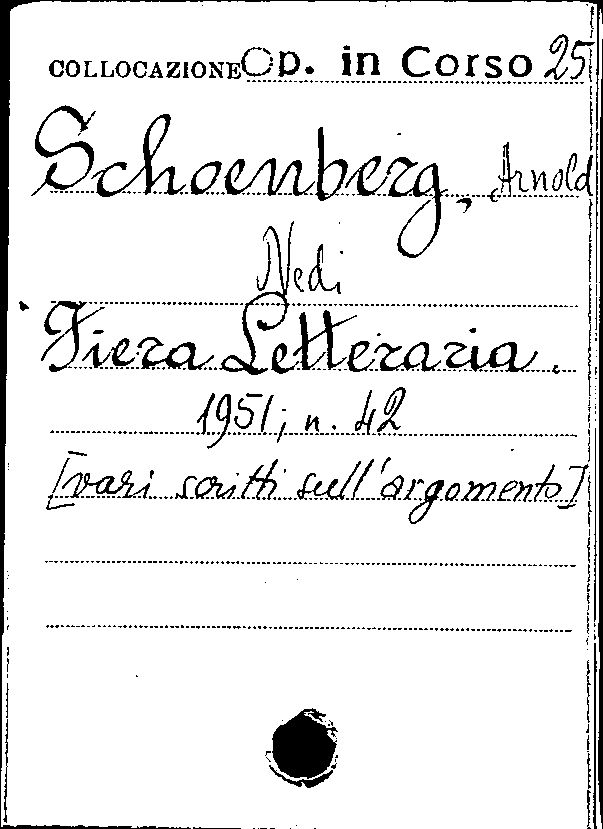 COLLOCAZIONE Op. in Corso 25
Schoenberg, Arnold
Vedi
Fiera Letteraria.
1951; n. 42
[vari scritti sull'argomento]